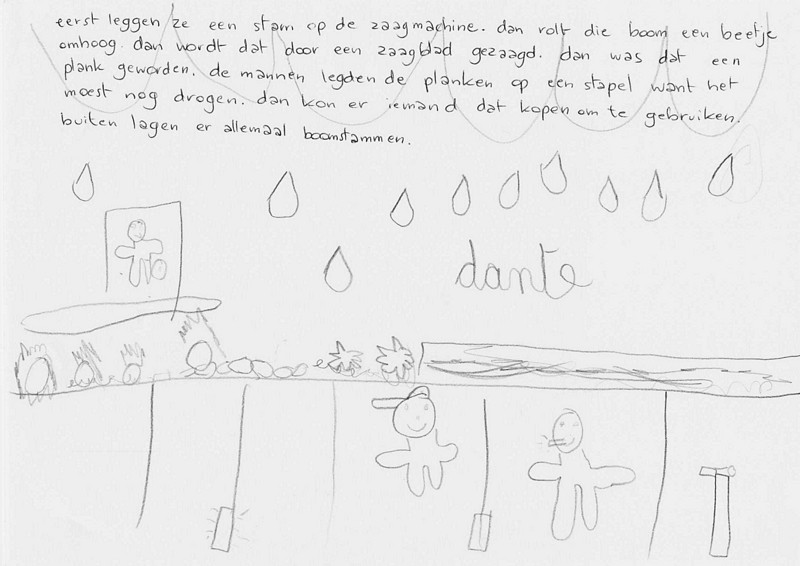 eerst leggen ze een stam op de zaagmachine. dan rolt die boom een beetje
omhoog. dan wordt dat door een zaagblad gezaagd. dan was dat een
plank geworden. de mannen legden de planken op een stapel want het
moest nog drogen. dan kon er iemand dat kopen om te gebruiken.
buiten lagen er allemaal boomstammen.
dante